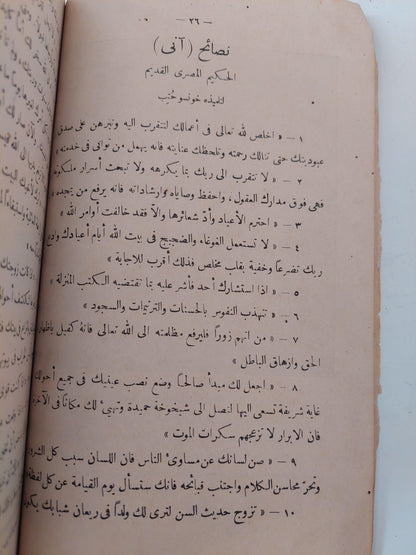 — ٢٦ —
نصائح (آنى)
الحكيم المصرى القديم
لتلميذه خونسو حُتِب
١ — « اخلص لله تعالى فى أعمالك لتتقرب اليه وتبرهن على صدق
عبوديتك حتى تنالك رحمته وتلحظك عنايته فانه يهمل من توانى فى خدمته »
٢ — « لا تتقرب الى ربك بما يكرهه ولا تبحث أسرار ملكوته
فهى فوق مدارك العقول، واحفظ وصاياه وارشاداته فانه يرفع من يمجده »
٣ — « احترم الأعياد وأدّ شعائرها والّا فقد خالفت أوامر الله »
٤ — « لا تستعمل الغوغاء والضجيج فى بيت الله أيام أعيادك وادع
ربك تضرعًا وخفية بقلب مخلص فذلك أقرب للاجابة »
٥ — « اذا استشارك أحد فأشر عليه بما تقتضيه الكتب المنزلة »
٦ — « تتهذب النفوس بالحسنات والترتيمات والسجود »
٧ — « من اتهم زورًا فليرفع مظلمته الى الله تعالى فانهُ كفيل باظهار
الحق وازهاق الباطل »
٨ — « اجعل لك مبدأ صالحًا وضع نصب عينيك فى جميع أحوالك
غاية شريفة تسعى اليها لتصل الى شيخوخة حميدة وتهيئ لك مكانًا فى الآخرة
فان الابرار لا تزعجهم سكرات الموت »
٩ — « صن لسانك عن مساوئ الناس فان اللسان سبب كل الشرور
وتحرّ محاسن الكلام واجتنب قبائحه فانك ستسأل يوم القيامة عن كل لفظة
١٠ — « تزوج حديث السن لترى لك ولدًا فى ريعان شبابك يكون